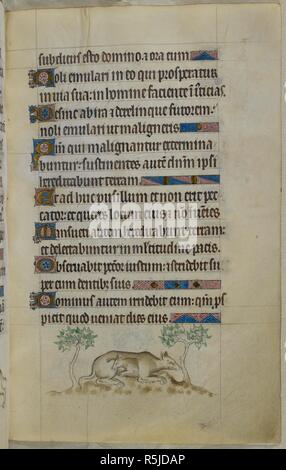 subditus esto domino: a ora eum
Noli emulari in eo qui prosperatur
in via sua: in homine faciente iusticias
Desine ab ira a derelinque furorem:
noli emulari ut maligneris
Qm qui malignantur extermina
buntur: sustinentes autem dnm ipsi
hereditabunt terram
Et adhuc pusillum et non erit pec
cator: et queres locum eius et no inuenies
Mansueti autem hereditabunt terram:
et delectabuntur in multitudine pacis
Obseruabit pctor iustum: et stridebit su
per eum dentibus suis
Dominus autem irridebit eum: qm ps
picit quod ueniat dies eius
alamy
www.alamy.com - R5JDAP